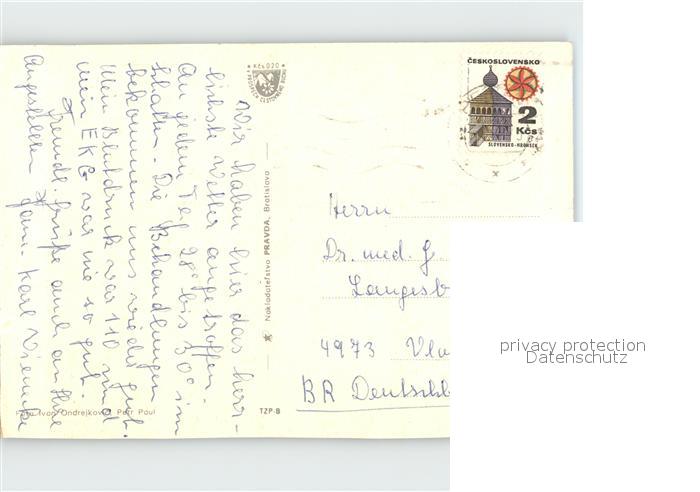 Kčs 0,20
ČESKOSLOVENSKO
2
Kčs
SLOVENSKO-HRONSEK
Wir haben hier das herr-
lichste Wetter angetroffen.
An jedem Tag 28° bis 30° im
Schatten. Die Behandlungen
bekommen uns wieder gut.
Mein Blutdruck war 110 und
mein EKG war nie so gut.
Freundl. Grüße auch an Ihre
Angestellten Fam. Karl
Nakladateľstvo PRAVDA, Bratislava
Herrn
Dr. med. G.
4973 Vlo
BR Deutschl
Foto Ivan Ondrejkovič, Petr Paul
TZP-B
privacy protection
Datenschutz